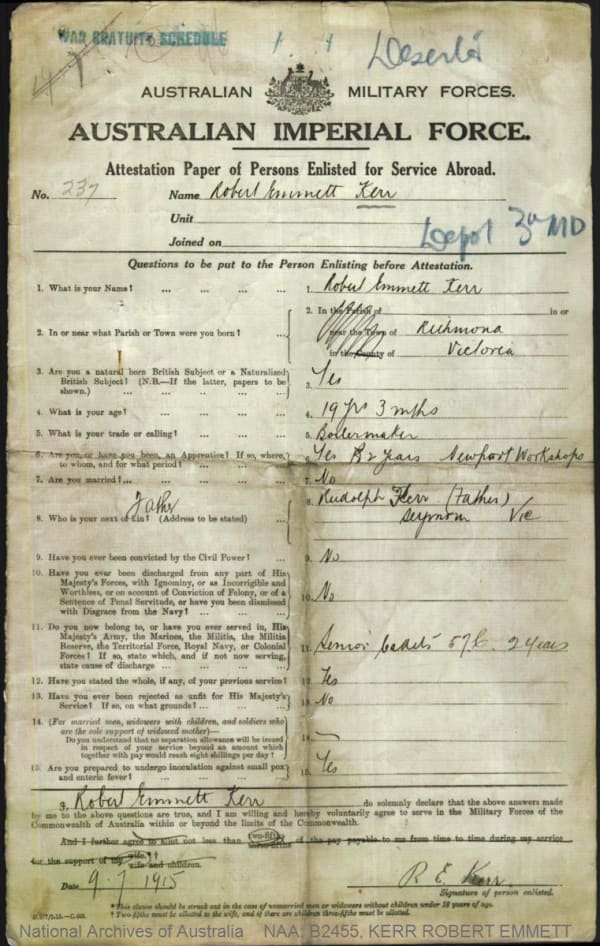 WAR GRATUITY SCHEDULE
Deserter
AUSTRALIAN MILITARY FORCES.
AUSTRALIAN IMPERIAL FORCE.
Attestation Paper of Persons Enlisted for Service Abroad.
No. 237 Name Robert Emmett Kerr
Unit
Joined on
Depot 3rd MD
Questions to be put to the Person Enlisting before Attestation.
1. What is your Name? ... ... ... ... 1. Robert Emmett Kerr
2. In or near what Parish or Town were you born? ... 2. In the Parish of in or
near the Town of Richmond
in the County of Victoria
3. Are you a natural born British Subject or a Naturalized
British Subject? (N.B.—If the latter, papers to be
shown.) ... ... ... ... 3. Yes
4. What is your age? ... ... ... ... 4. 19 yrs 3 mths
5. What is your trade or calling? ... ... ... 5. Boilermaker
6. Are you, or have you been, an Apprentice? If so, where,
to whom, and for what period? ... ... 6. Yes 2 years Newport Workshops
7. Are you married? ... ... ... ... 7. No
Father
8. Who is your next of kin? (Address to be stated) ... 8. Rudolph Kerr (Father)
Seymour Vic
9. Have you ever been convicted by the Civil Power? ... 9. No
10. Have you ever been discharged from any part of His
Majesty's Forces, with Ignominy, or as Incorrigible and
Worthless, or on account of Conviction of Felony, or of a
Sentence of Penal Servitude, or have you been dismissed
with Disgrace from the Navy? ... ... ... 10. No
11. Do you now belong to, or have you ever served in, His
Majesty's Army, the Marines, the Militia, the Militia
Reserve, the Territorial Force, Royal Navy, or Colonial
Forces? If so, state which, and if not now serving,
state cause of discharge ... ... ... 11. Senior Cadets 2 years
12. Have you stated the whole, if any, of your previous service? 12. Yes
13. Have you ever been rejected as unfit for His Majesty's
Service? If so, on what grounds? ... ... 13. No
14. (For married men, widowers with children, and soldiers who
are the sole support of widowed mother)—
Do you understand that no separation allowance will be issued
in respect of your service beyond an amount which
together with pay would reach eight shillings per day? 14. —
15. Are you prepared to undergo inoculation against small pox
and enteric fever? ... ... ... 15. Yes
I, Robert Emmett Kerr do solemnly declare that the above answers made
by me to the above questions are true, and I am willing and hereby voluntarily agree to serve in the Military Forces of the
Commonwealth of Australia within or beyond the limits of the Commonwealth.
And I further agree to allot not less than two-fifths three-fifths of the pay payable to me from time to time during my service
for the support of my wife.* wife and children.
Date 9.7.1915 R. E. Kerr
Signature of person enlisted.
*This clause should be struck out in the case of unmarried men or widowers without children under 18 years of age.
† Two-fifths must be allotted to the wife, and if there are children three-fifths must be allotted.
National Archives of Australia NAA: B2455, KERR ROBERT EMMETT